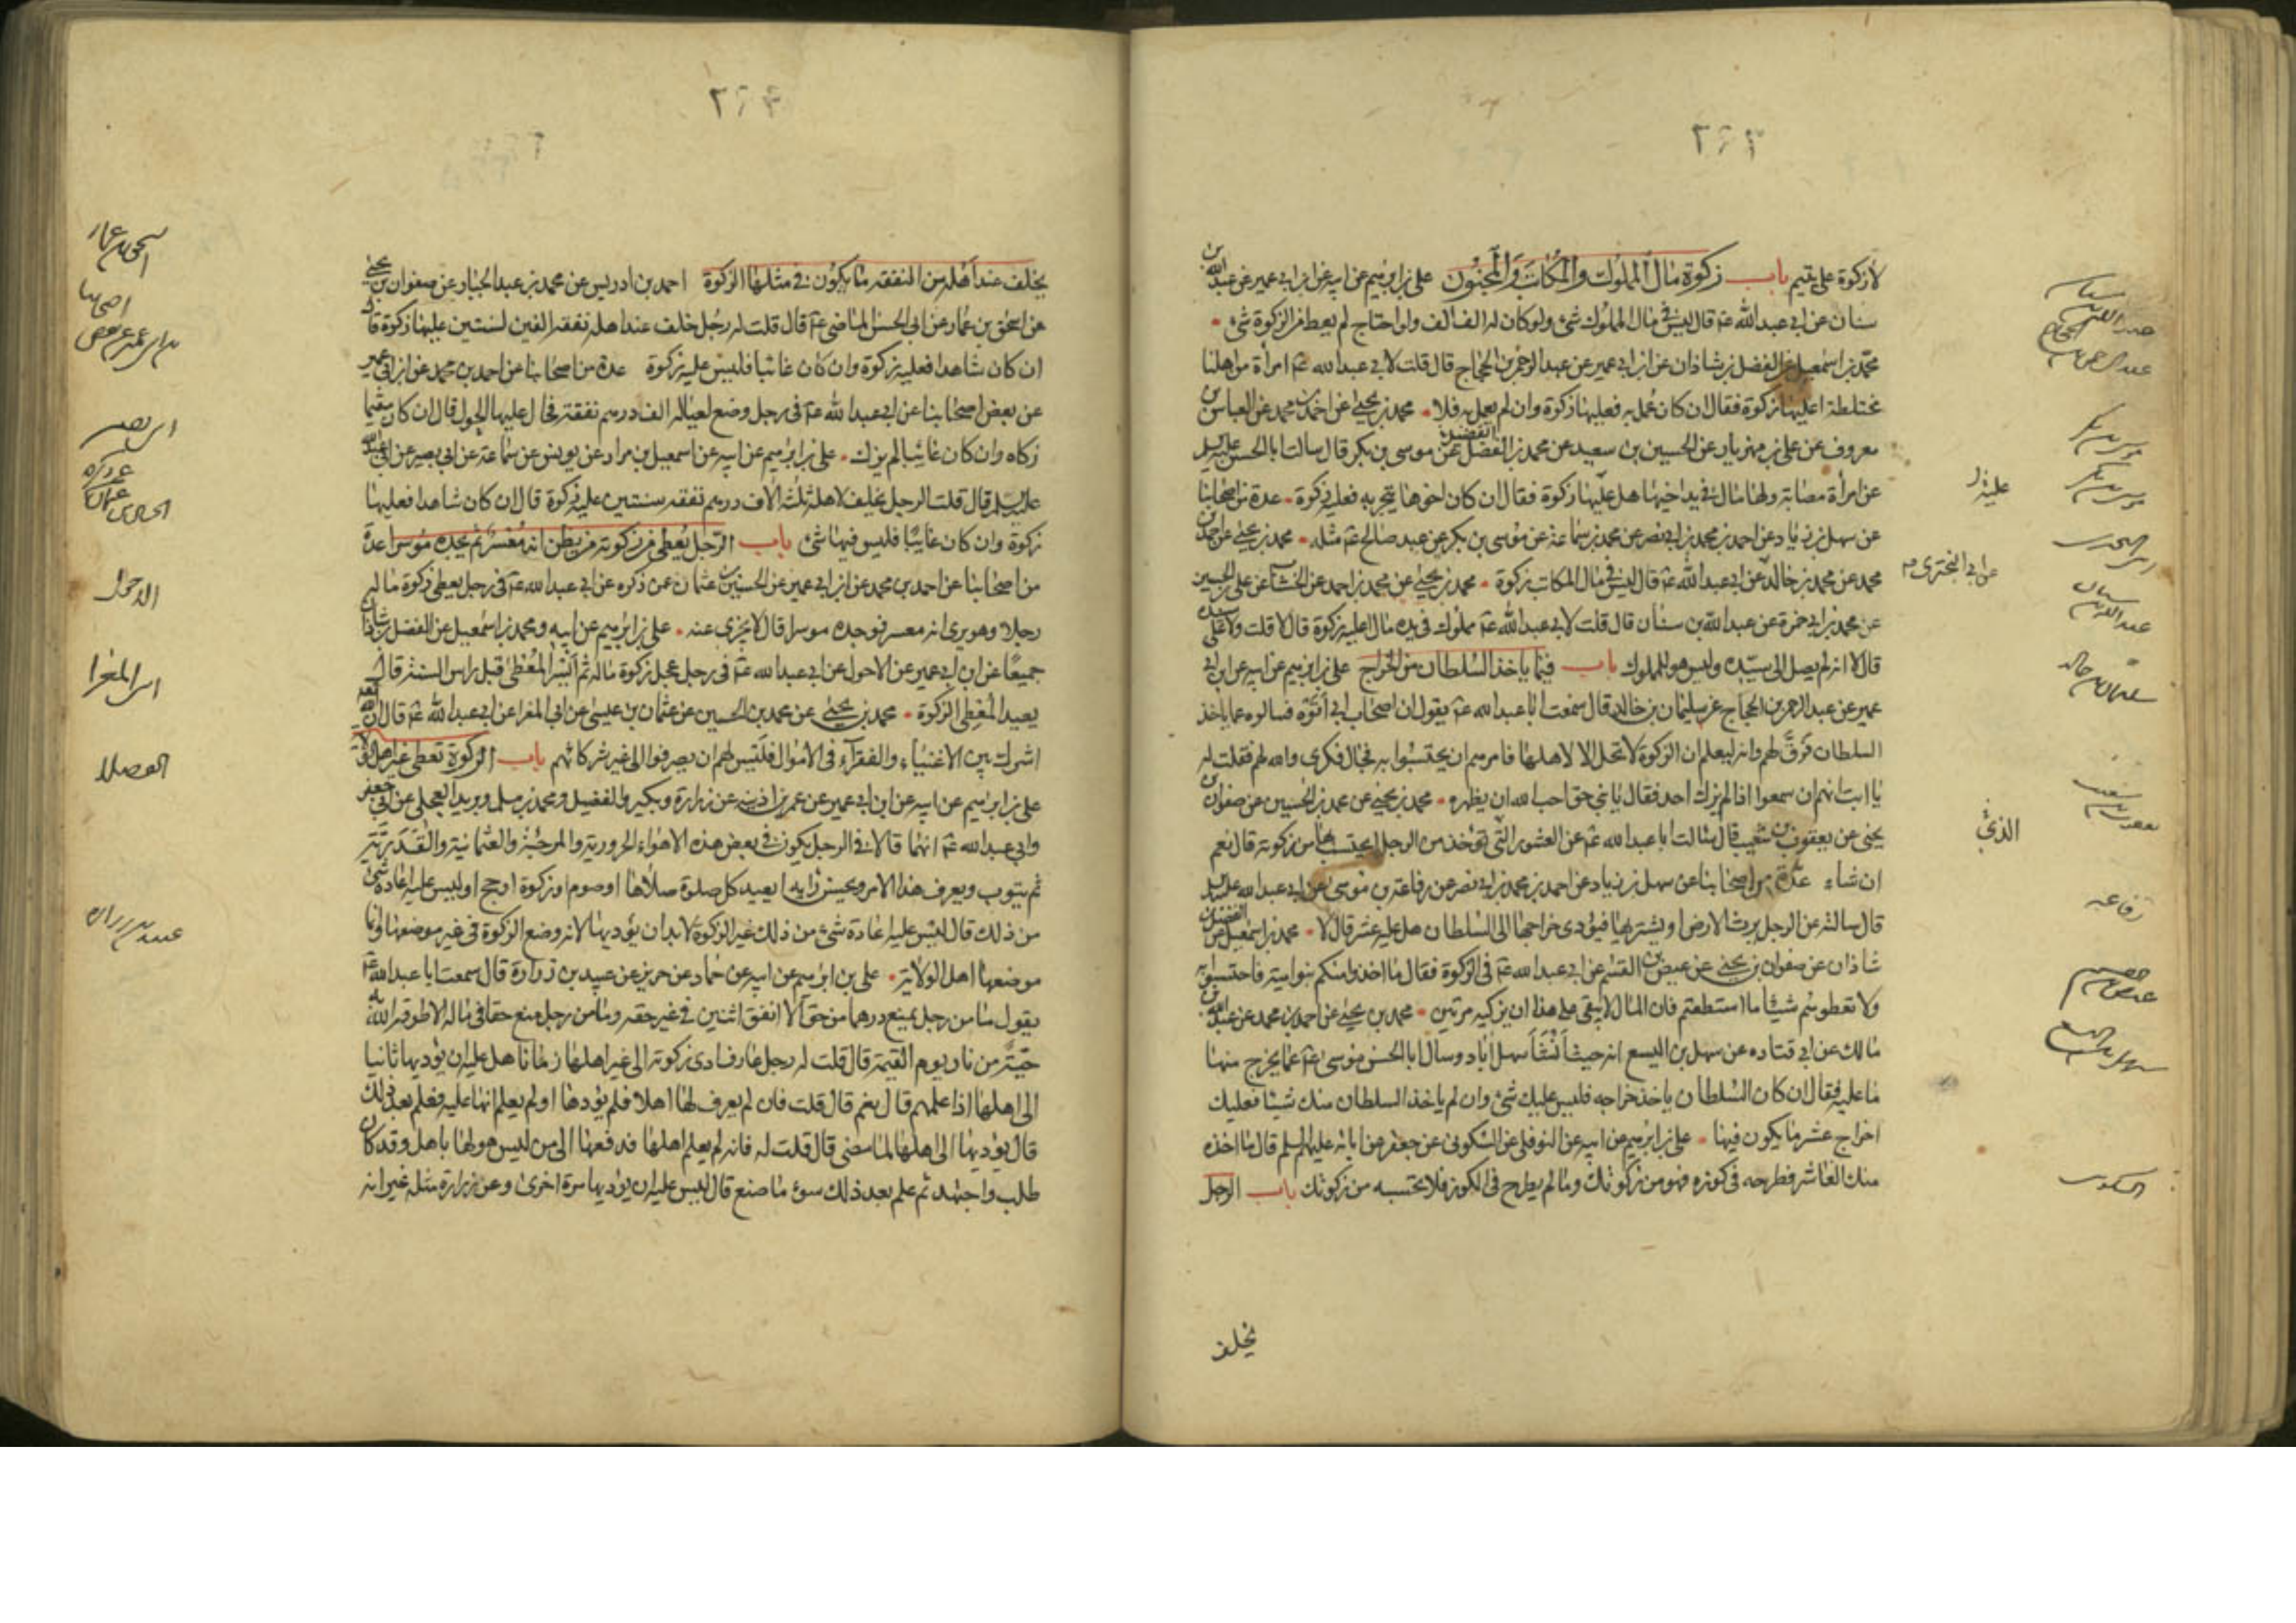 لا زكوة على يتيم باب زكوة مال المملوك والمكاتب والمجنون على بن ابرهيم عن ابيه عن ابن ابي عمير عن عبد الله بن
سنان عن ابي عبد الله عم قال ليس في مال المملوك شئ ولو كان له الف الف ولو احتاج لم يعط من الزكوة شئ
محمد بن اسمعيل عن الفضل بن شاذان عن ابن ابي عمير عن عبد الرحمن بن الحجاج قال قلت لابي عبد الله عم امرأة من اهلنا
مختلطة اعليها زكوة فقال ان كان عمل به فعليها زكوة وان لم يعمل به فلا محمد بن يحيى عن احمد بن محمد عن العباس بن
معروف عن على بن مهزيار عن الحسين بن سعيد عن محمد بن الفضل عن موسى بن بكر قال سالت ابا الحسن عليه السلم
عن امرأة مصابة ولها مال في يد اخيها هل عليها زكوة فقال ان كان اخوها يتجر به فعليه زكوة عدة من اصحابنا
عن سهل بن زياد عن احمد بن محمد بن ابي نصر عن محمد بن سماعة عن موسى بن بكر عن عبد صالح عم مثله محمد بن يحيى عن احمد بن
محمد عن محمد بن خالد عن ابي عبد الله عم قال ليس في مال المكاتب زكوة محمد بن يحيى عن محمد بن احمد عن الخشاب عن على بن الحسين
عن محمد بن ابي حمزة عن عبد الله بن سنان قال قلت لابي عبد الله عم مملوك في يده مال اعليه زكوة قال لا قلت ولا على سيده
قال لا انه لم يصل الى سيده وليس هو للمملوك باب فيما ياخذ السلطان من الخراج على بن ابرهيم عن ابيه عن ابن ابي
عمير عن عبد الرحمن بن الحجاج عن سليمان بن خالد قال سمعت ابا عبد الله عم يقول ان اصحاب ابي اتوه فسالوه عما ياخذ
السلطان فرق لهم وانه ليعلم ان الزكوة لا تحل الا لاهلها فامرهم ان يحتسبوا به فجال فكري والله لهم فقلت له
يا ابت انهم ان سمعوا اذا لم يزك احد فقال يا بني حق احب الله ان يظهره محمد بن يحيى عن محمد بن الحسين عن صفوان بن
يحيى عن يعقوب بن شعيب قال سالت ابا عبد الله عم عن العشور التي تؤخذ من الرجل ايحتسب بها من زكوته قال نعم
ان شاء عدة من اصحابنا عن سهل بن زياد عن احمد بن محمد بن ابي نصر عن رفاعة بن موسى عن ابي عبد الله عليه السلم
قال سالته عن الرجل يرث الارض او يشتريها فيؤدى خراجها الى السلطان هل عليه عشر قال لا محمد بن اسمعيل عن الفضل بن
شاذان عن صفوان بن يحيى عن عيص بن القسم عن ابي عبد الله عم في الزكوة فقال ما اخذوا منكم بنو امية فاحتسبوا به
ولا تعطوهم شيئا ما استطعتم فان المال لا يبقى على هذا ان يزكيه مرتين محمد بن يحيى عن احمد بن محمد عن عبد الله بن
مالك عن ابي قتاده عن سهل بن اليسع انه حيث انشأ سهل اباد وسال ابا الحسن موسى عم عما يخرج منها
ما عليه فقال ان كان السلطان ياخذ خراجه فليس عليك شئ وان لم ياخذ السلطان منك شيئا فعليك
اخراج عشر ما يكون فيها على بن ابرهيم عن ابيه عن النوفلى عن السكونى عن جعفر عن ابائه عليهم السلم قال ما اخذه
منك العاشر فطرحه في كوزه فهو من زكوتك وما لم يطرح في الكوز فلا تحتسبه من زكوتك باب الرجل
يخلف
عبد الله بن سنان
عبد الرحمن بن الحجاج
موسى بن بكر
موسى بن بكر
عليه
عن ابي البختري
عبد الله بن سنان
سليمان بن خالد
يعقوب بن شعيب
الذي
رفاعه
عيص بن القسم
سهل بن اليسع
السكونى
يخلف عند اهله من النفقه ما يكون في مثلها الزكوة احمد بن ادريس عن محمد بن عبد الجبار عن صفوان بن يحيى
عن اسحق بن عمار عن ابي الحسن الماضى عم قال قلت له رجل خلف عند اهله نفقه الفين لسنتين عليها زكوة قال
ان كان شاهدا فعليه زكوة وان كان غائبا فليس عليه زكوة عدة من اصحابنا عن احمد بن محمد عن ابن ابي عمير
عن بعض اصحابنا عن ابي عبد الله عم في رجل وضع لعياله الف درهم نفقة فحال عليها الحول قال ان كان مقيما
زكاه وان كان غائبا لم يزك على بن ابرهيم عن ابيه عن اسمعيل بن مرار عن يونس عن سماعة عن ابي بصير عن ابي عبد الله
عليه السلم قال قلت الرجل يخلف لاهله ثلثة الاف درهم نفقه سنتين عليه زكوة قال ان كان شاهدا فعليها
زكوة وان كان غائبا فليس فيها شئ باب الرجل يعطى من زكوته من يظن انه معسر ثم يجده موسرا عدة
من اصحابنا عن احمد بن محمد عن ابن ابي عمير عن الحسين بن عثمان عمن ذكره عن ابي عبد الله عم في رجل يعطى زكوة ماله
رجلا وهو يرى انه معسر فوجده موسرا قال لا يجزى عنه على بن ابرهيم عن ابيه ومحمد بن اسمعيل عن الفضل بن شاذان
جميعا عن ابن ابي عمير عن الاحول عن ابي عبد الله عم في رجل عجل زكوة ماله ثم ايسر المعطى قبل راس السنة قال
يعيد المعطى الزكوة محمد بن يحيى عن محمد بن الحسين عن عثمان بن عيسى عن ابي المغرا عن ابي عبد الله عم قال ان الله
اشرك بين الاغنياء والفقراء في الاموال فليس لهم ان يصرفوا الى غير شركائهم باب الزكوة تعطى غير اهل الولاية
على بن ابرهيم عن ابيه عن ابن ابي عمير عن عمر بن اذينه عن زرارة وبكير والفضيل ومحمد بن مسلم وبريد العجلى عن ابي جعفر
وابي عبد الله عم انهما قالا في الرجل يكون في بعض هذه الاهواء الحرورية والمرجئة والعثمانية والقدرية
ثم يتوب ويعرف هذا الامر ويحسن رايه ايعيد كل صلوة صلاها او صوم او زكوة او حج او ليس عليه اعادة شئ
من ذلك قال ليس عليه اعادة شئ من ذلك غير الزكوة لا بد ان يؤديها لانه وضع الزكوة في غير موضعها وانما
موضعها اهل الولاية على بن ابرهيم عن ابيه عن حماد عن حريز عن عبيد بن زرارة قال سمعت ابا عبد الله عم
يقول ما من رجل يمنع درهما من حق الا انفق اثنين في غير حقه وما من رجل منع حقا في ماله الا طوقه الله به
حية من نار يوم القيمة قال قلت له رجل عارف ادى زكوته الى غير اهلها زمانا هل عليه ان يؤديها ثانيا
الى اهلها اذا علمهم قال نعم قال قلت فان لم يعرف لها اهلا فلم يؤدها او لم يعلم انها عليه فعلم بعد ذلك
قال يؤديها الى اهلها لما مضى قال قلت له فانه لم يعلم اهلها فدفعها الى من ليس هو لها باهل وقد كان
طلب واجتهد ثم علم بعد ذلك سوء ما صنع قال ليس عليه ان يؤديها مرة اخرى وعن زرارة مثله غير انه
اسحق بن عمار
ابي بصير
الاحول
ابي المغرا
الفضلا
عبيد بن زراره